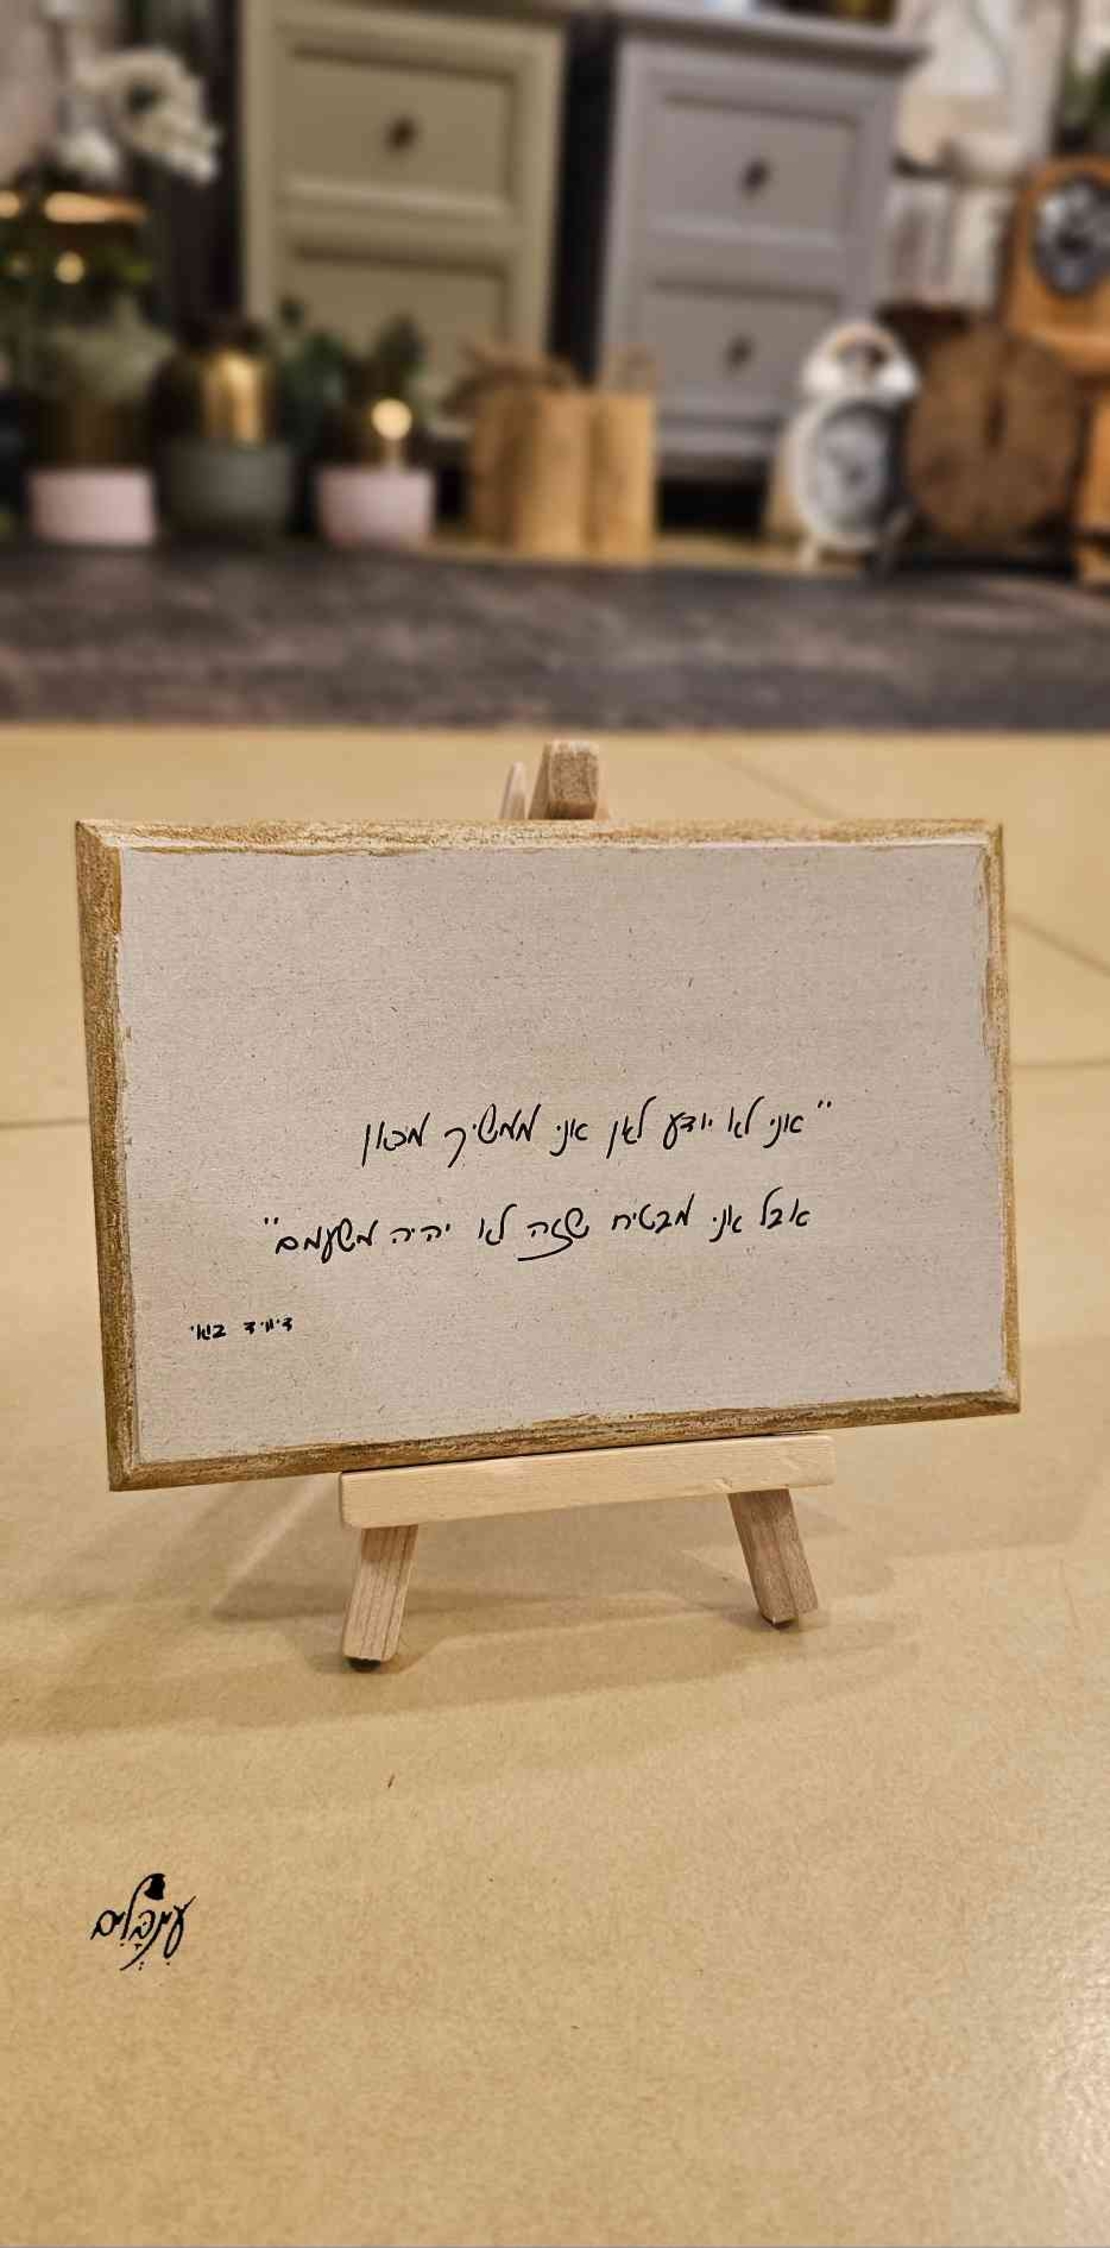 "אני לא יודע לאן אני ממשיך מכאן
אבל אני מבטיח שזה לא יהיה משעמם"
דיויד בואי